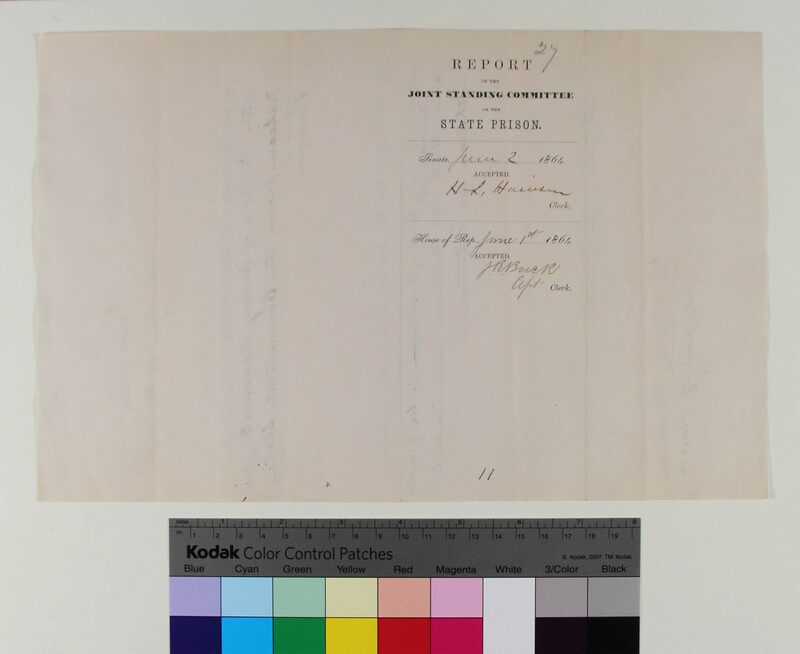 27
REPORT
OF THE
JOINT STANDING COMMITTEE
ON THE
STATE PRISON.
Senate, June 2 1864
ACCEPTED.
H. L.
Clerk.
House of Rep. June 1st 1864
ACCEPTED.
J.R. Buck
Clerk.
11
mm 1 2 3 4 5 6 7 8
cm 1 2 3 4 5 6 7 8 9 10 11 12 13 14 15 16 17 18 19
Kodak Color Control Patches
© Kodak, 2007 TM: Kodak
Blue Cyan Green Yellow Red Magenta White 3/Color Black